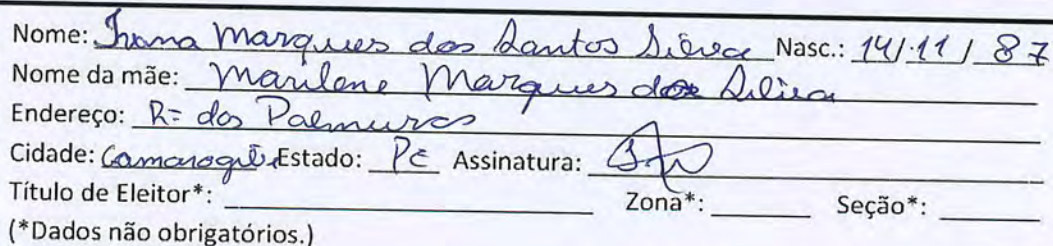 Nome: Ivana Marques dos Santos Silva Nasc.: 14/11/87
Nome da mãe: Marilene Marques dos
Endereço: R= dos
Cidade: Estado: PE Assinatura:
Título de Eleitor*: Zona*: Seção*:
(*Dados não obrigatórios.)